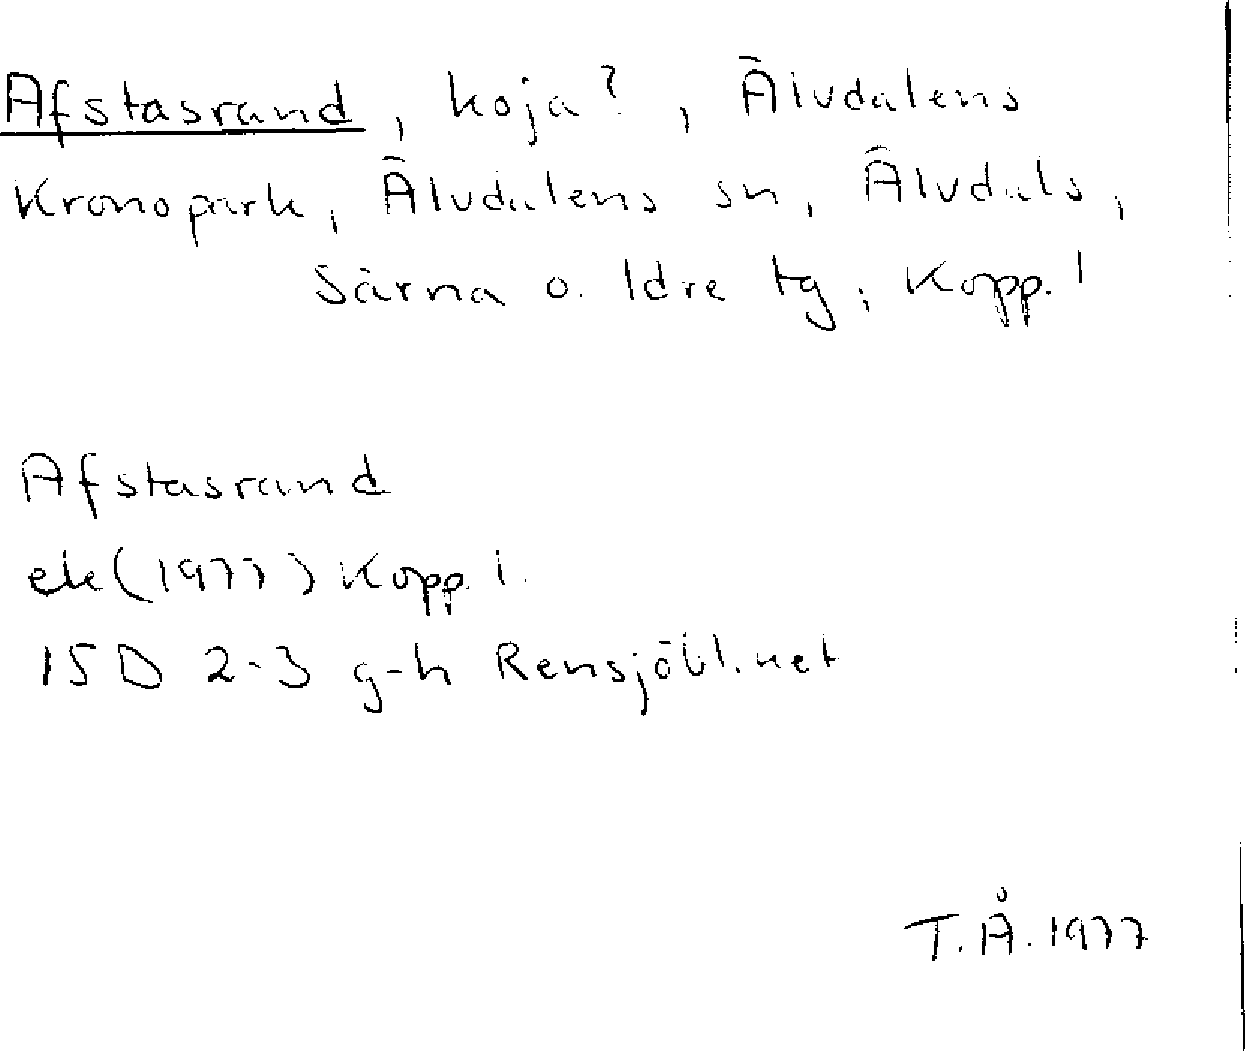 Afstasrand, koja?, Älvdalens
Kronopark, Älvdalens sn, Älvdals,
Särna o. Idre tg, Kopp. l
Afstasrand
ek (1977) Kopp. l.
15D 2-3 g-h Rensjöbl.net
T.Å. 1977